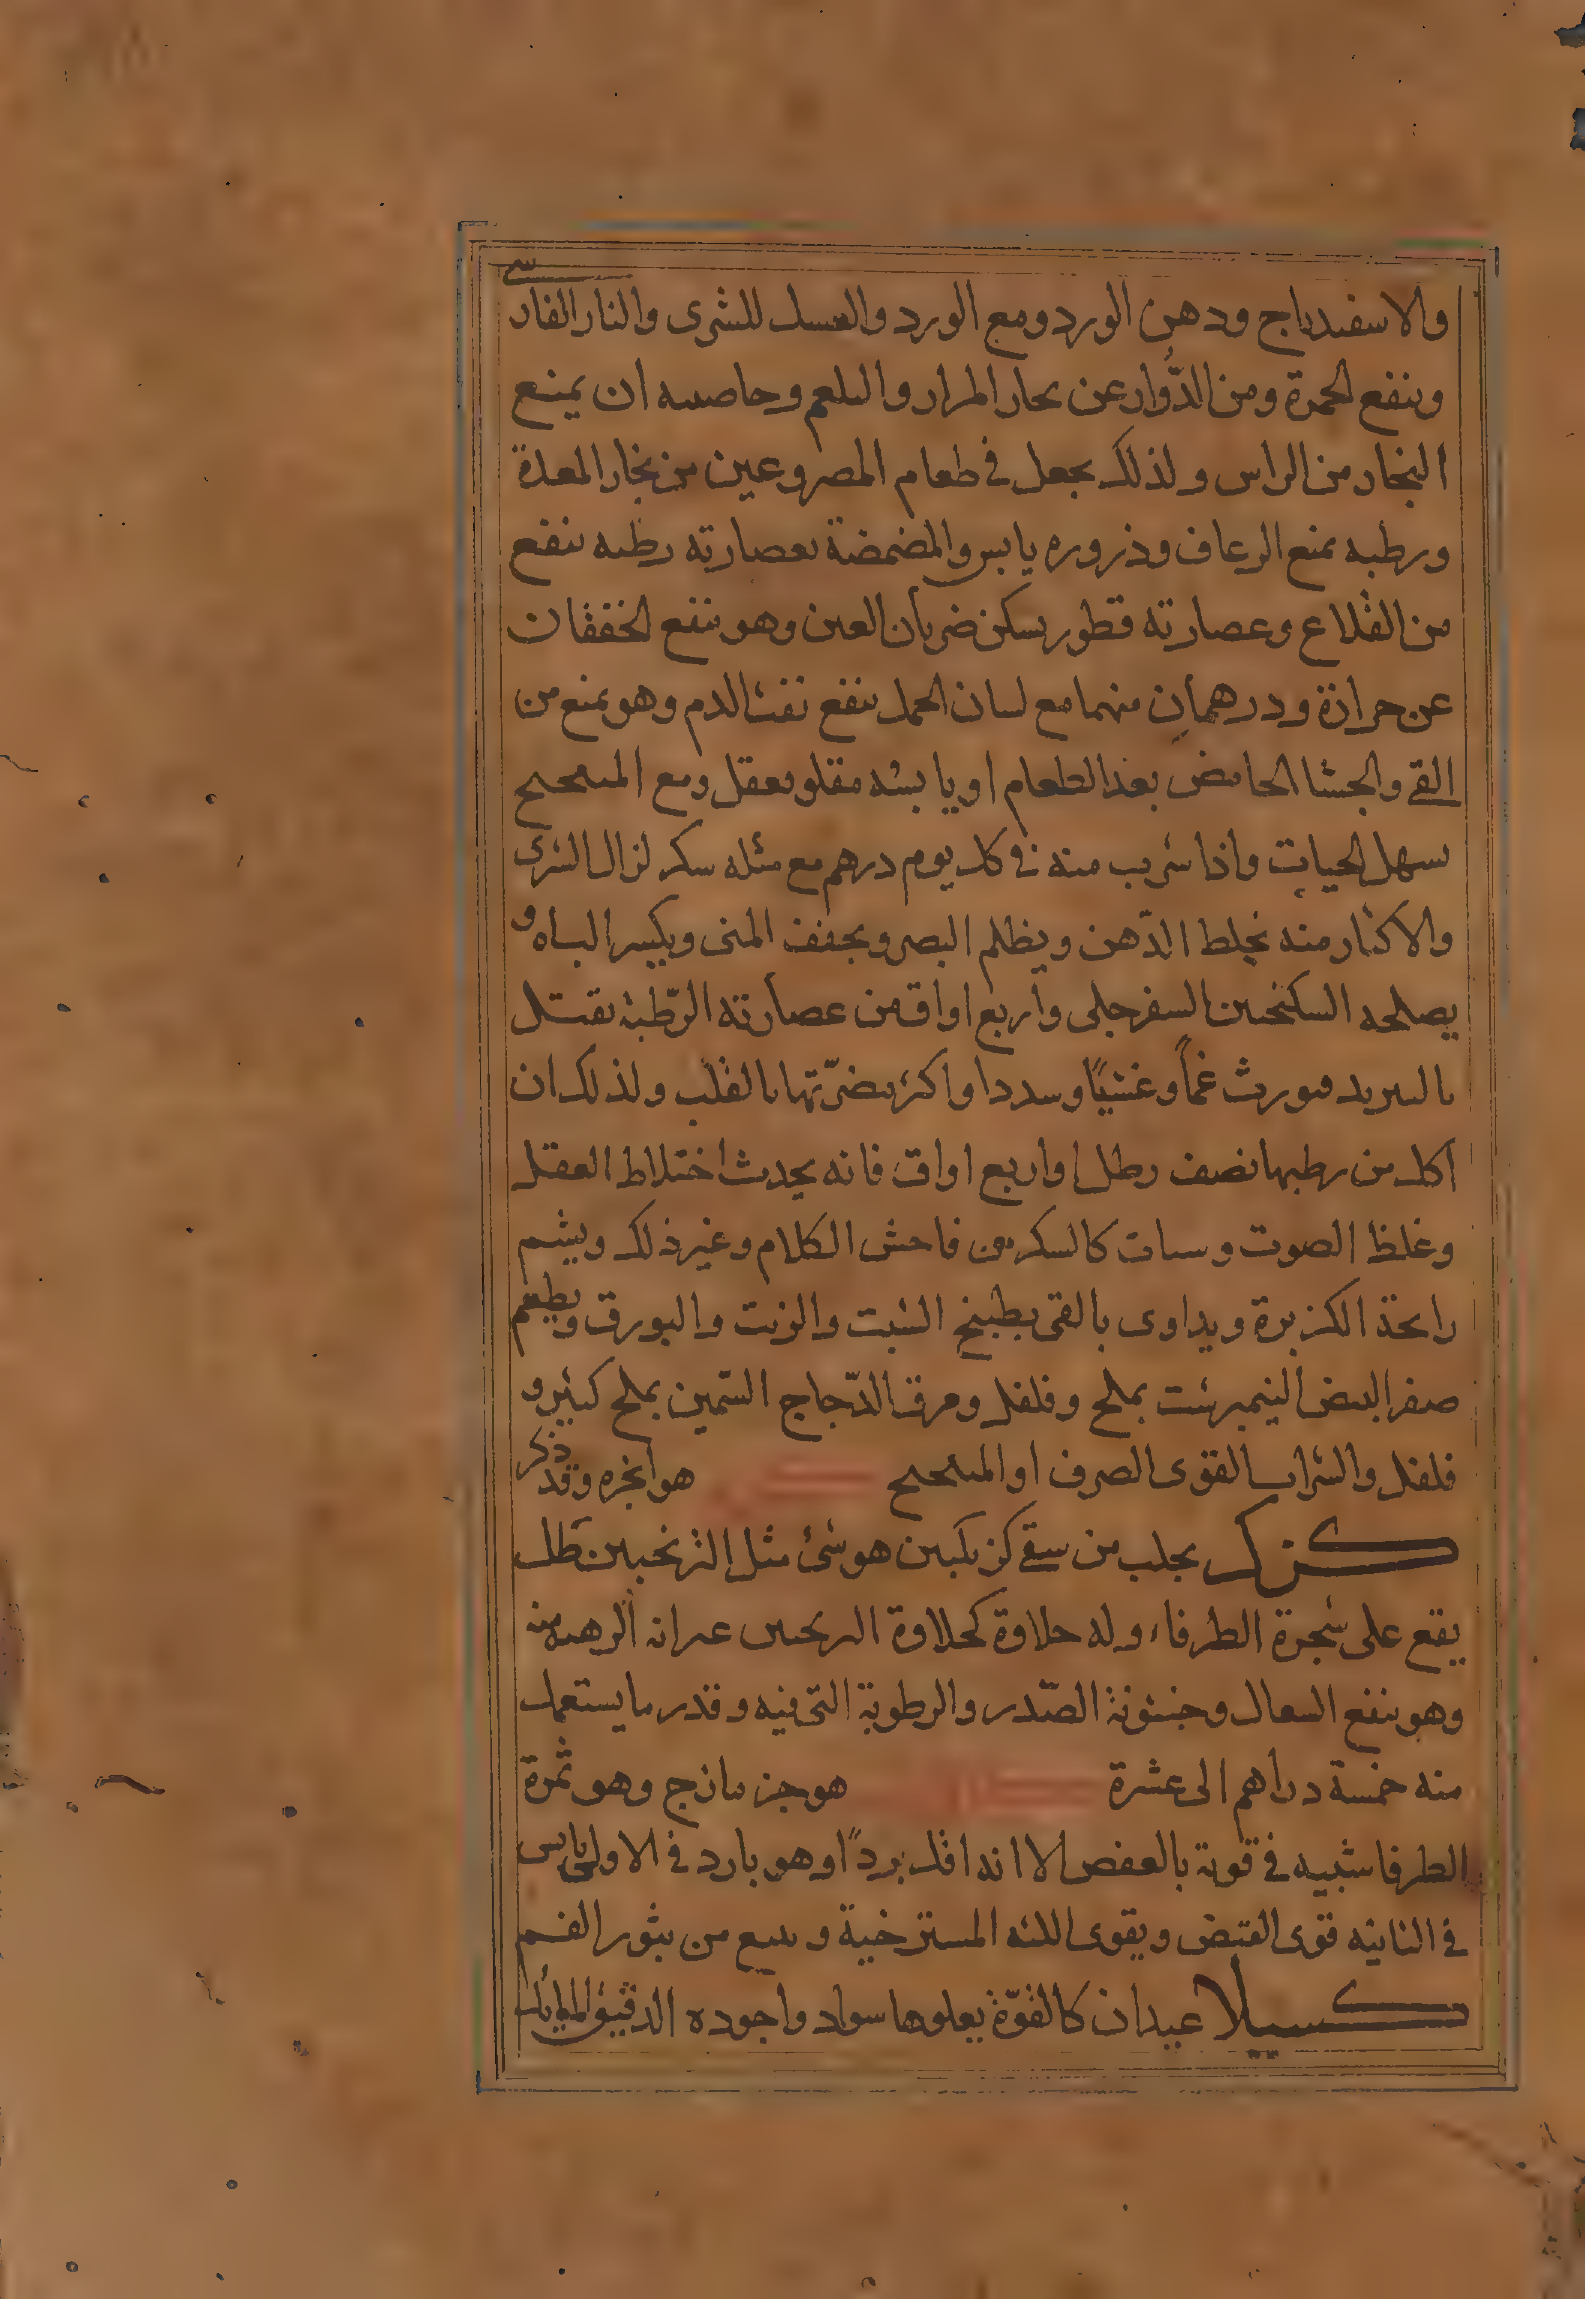 والاسفيداج ودهن الورد ومع الورد والعسل للشرى والنار الفارسى
وينفع الحمرة ومن الدُّوار عن بخار المرار والبلغم وخاصيته ان يمنع
البخار من الراس ولذلك يجعل في طعام المصروعين من بخار المعدة
ورطبه يمنع الرعاف وذروره يابس والمضمضة بعصارته رطبه ينفع
من القلاع وعصارته قطور يسكن ضربان العين وهو ينفع الخفقان
عن حرارة ودرهمان منهما مع لسان الحمل ينفع نفث الدم وهو يمنع من
القي والجشا الحامض بعد الطعام او يابسه مقلو يعقل ومع الميبختج
يسهل الحيات واذا شرب منه في كل يوم درهم مع مثله سكر لزال الشرى
والاكثار منه يخلط الذّهن ويظلم البصر ويجفف المنى ويكسر الباه و
يصلحه السكنجبين السفرجلى واربع اواق من عصارته الرّطبة يقتل
بالتبريد فيورث غماً وغشيًا وسددا واكثر مضرّتها بالقلب ولذلك ان
اكل من رطبها نصف رطل او اربع اواق فانه يحدث اختلاط العقل
وغلظ الصوت وسبات كالسكر من فاحش الكلام وغير ذلك ويشم
رايحة الكزبرة ويداوى بالقى بطبيخ الشبت والزيت والبورق ويطعم
صفر البيض النيمبرشت بملح وفلفل ومرق الدّجاج السّمين بملح كثير و
فلفل والشراب القوى الصرف او الميبختج هو انجره وقد ذكر
كزك يجلب من كزنكبين هو شئ مثل الترنجبين طل
يقع على شجرة الطرفاء وله حلاوة كحلاوة الترنجبين غير انه منه
وهو ينفع السعال وخشونة الصّدر والرطوبة التى فيه وقدر ما يستعمل
منه خمسة دراهم الى عشرة هو جزمازج وهو ثمرة
الطرفا شبيه في قوته بالعفص الا انه اقل بردًا وهو بارد في الاولى يابس
في الثانيه قوى القبض ويقوى اللثه المسترخية وينفع من بثور الفم
كسيلا عيدان كالفوّة يعلوها سواد واجوده الدقيق المايل